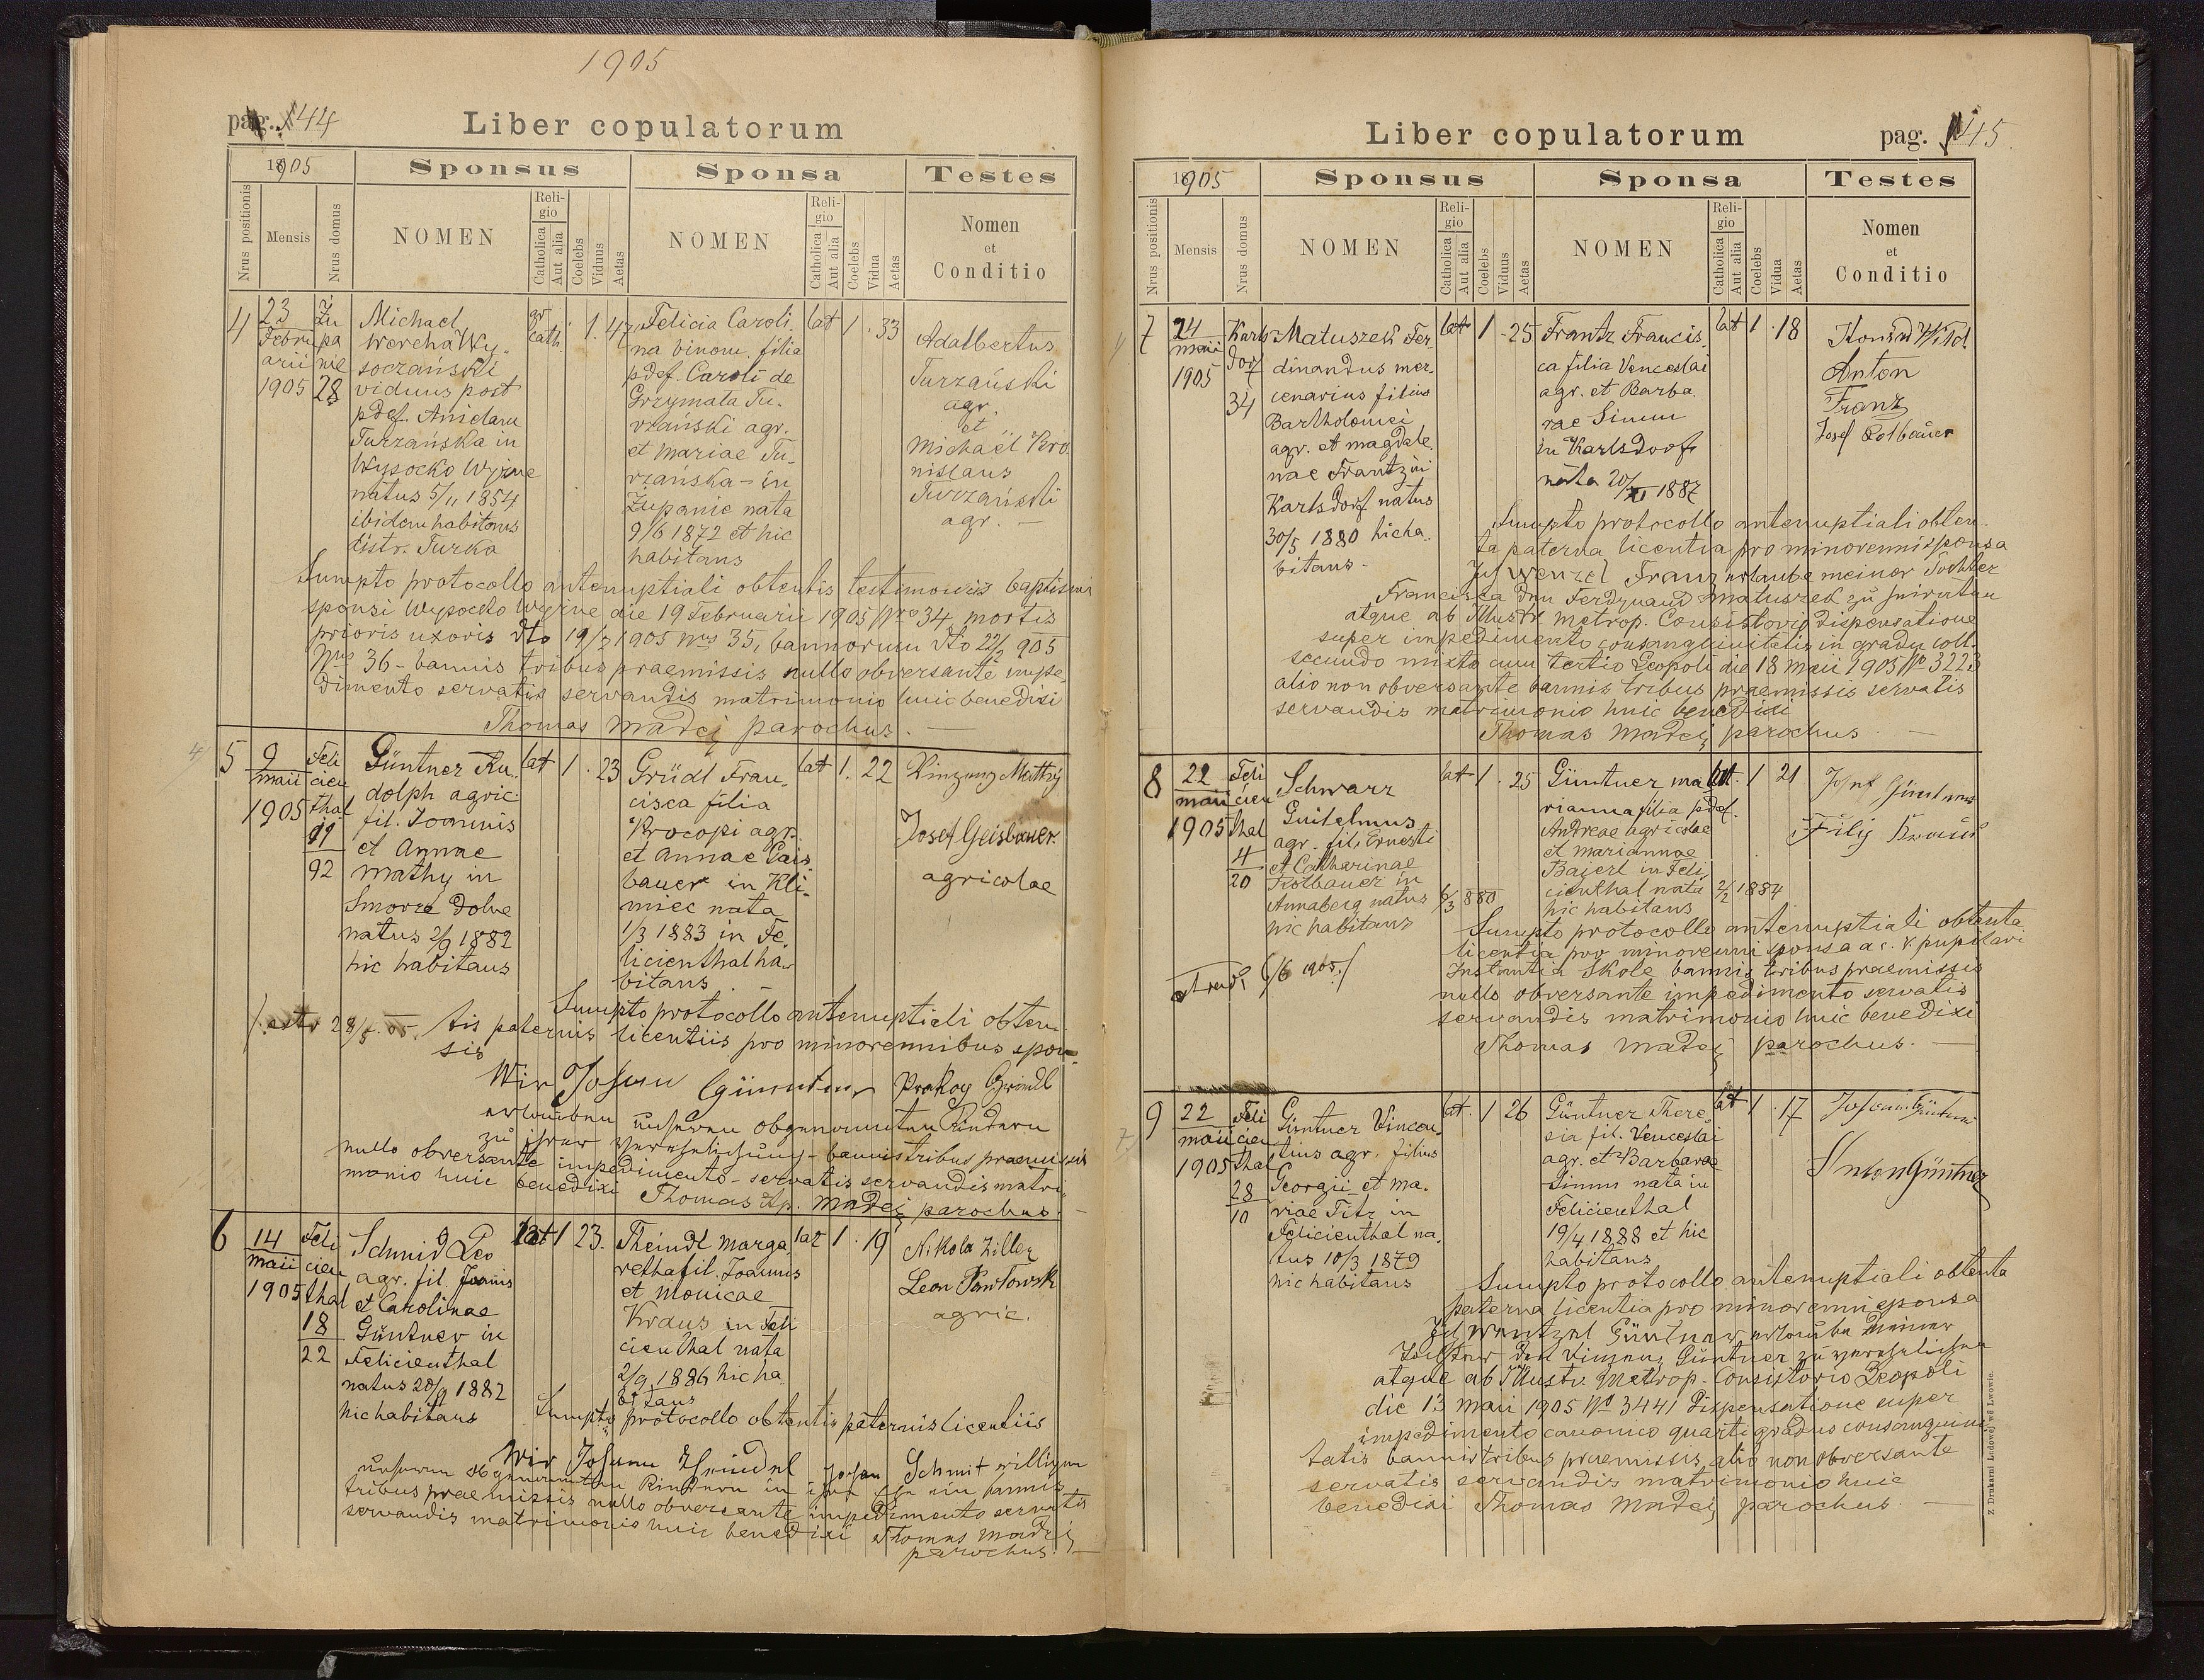 1905
pag. 144
Liber copulatorum
1905
Sponsus
Sponsa
Testes
Nrus positionis
Mensis
Nrus domus
NOMEN
Religio
Catholica
Aut alia
Coelebs
Viduus
Aetas
NOMEN
Religio
Catholica
Aut alia
Coelebs
Vidua
Aetas
Nomen
et
Conditio
4
23
Februarii
1905
Żu
pa
nie
28
Michael
Wercha Wy-
soczański
viduus post
pdef.
Turzańska in
Wysocko Wyżne
natus 5/11 1854
ibidem habitans
distr. Turka
gr
cath.
1. 47
Felicia Caroli-
na binom. filia
pdef. Caroli de
Grzymala Tu-
rzański agr.
et Mariae Tu-
rzańska - in
Żupanie nata
9/6 1872 et hic
habitans
lat 1. 33
Adalbertus
Turzański
agr.
et
Michaël Bro
nislaus
Turzański
agr. -
Sumpto protocollo antenuptiali obtentis testimoniis baptismi
sponsi Wysocko Wyżne die 19 Februarii 1905 Nro 34, mortis
prioris uxoris dto 19/2 1905 Nrs 35, bannorum dto 22/2 905
Nrus 36 - bannis tribus praemissis nullo obversante impe-
dimento servatis servandis matrimonio huic benedixi
Thomas Madej parochus. -
5
9
maii
1905
Feli
cien
thal
11
92
Güntner Ru-
dolph agric.
fil. Joannis
et Annae
Mathy in
Smorze dolne
natus 2/9 1882
hic habitans
lat 1. 23
Gründl Fran-
cisca filia
Procopi agr.
et Annae Gais
bauer in Kli-
miec nata
1/3 1883 in Fe-
licienthal ha-
bitans. -
lat 1. 22
Josef Geisbauer
agricolae
Sumpto protocollo antenuptiali obten-
tis paternis licentiis pro minorennibus spon-
sis
Wir Johann Güntner Prokop Gründl
erlauben unseren obgenannten Kindern
zu ihrer Verehelichung - bannis tribus praemissis
nullo obversante impedimento - servatis servandis matri-
monio huic benedixi Thomas Ap. Madej parochus. -
6
14
maii
1905
Feli
cien
thal
18
22
Schmid Leo
agr. fil. Joannis
et Carolinae
Güntner in
Felicienthal
natus 20/9 1882
hic habitans
lat 1 23.
Theindl Marga-
retha fil. Joannis
et Monicae
Kraus in Feli
cienthal nata
2/9 1886 hic ha
bitans
lat 1. 19
Nikola Ziller
Leon Pawłowski
agric.
Sumpto protocollo obtentis paternis licentiis
Wir Johann Theindl Johan Schmit willigen
unseren obgenannten Kindern in ihre Ehe ein bannis
tribus praemissis nullo obversante impedimento servatis
servandis matrimonio huic benedixi Thomas Madej
parochus. -
Liber copulatorum
pag. 145.
1905
Sponsus
Sponsa
Testes
Nrus positionis
Mensis
Nrus domus
NOMEN
Religio
Catholica
Aut alia
Coelebs
Viduus
Aetas
NOMEN
Religio
Catholica
Aut alia
Coelebs
Vidua
Aetas
Nomen
et
Conditio
7
24
maii
1905
Karls
dorf
34
Matuszek Fer-
dinandus mer-
cenarius filius
Bartholomei
agr. et Magdale-
nae Frantz in
Karlsdorf natus
30/5 1880 hic ha-
bitans -
lat 1 - 25
Frantz Francis-
ca filia Venceslai
agr. et Barba
rae Simm
in Karlsdorf
nata 20/XI 1887
lat 1. 18
Konrad Wild
Anton
Franz
Josef Kolbauer
Sumpto protocollo antenuptiali obten-
ta paterna licentia pro minorenni sponsa
Ich Wenzel Franz erlaube meiner Tochter
Francisca den Ferdynand Matuszek zu heiraten
atque ab Illustr. Metrop. Consistorio dispensatione
super impedimento consanguinitatis in gradu coll.
secundo mixto cum tertio Leopoli die 18 Maii 1905 No 3223
alio non obversante bannis tribus praemissis servatis
servandis matrimonio huic benedixi
Thomas Madej parochus. -
8
22
maii
1905
Feli
cien
thal
4
20
Schwarz
Guilelmus
agr. fil. Ernesti
et Catharinae
Kolbauer in
Annaberg natus 6/3 880
hic habitans
lat 1. 25
Güntner Ma
rianna filia pdef.
Andreae agricolae
et Mariannae
Baierl in Feli-
cienthal nata 2/2 1884
hic habitans
lat. 1 21
Filip Krauss
6/6 1905.
Sumpto protocollo antenuptiali obtenta
licentia pro minorenni sponsa a c. k. pupilari
Instantia Skole bannis tribus praemissis
nullo obversante impedimento servatis
servandis matrimonio huic benedixi
Thomas Madej parochus. -
9
22
maii
1905
Feli
cien
thal
28
10
Güntner Vincen-
tius agr. filius
Georgii et Ma-
riae Titz in
Felicienthal na-
tus 10/3 1879
hic habitans
lat. 1 26
Güntner There
sia fil. Venceslai
agr. et Barbarae
Simm nata in
Felicienthal
19/4 1888 et hic
habitans
lat 1. 17
Johann Güntner
Anton Güntner
Sumpto protocollo antenuptiali obtenta
paterna licentia pro minorenni sponsa
Ich Wentzel Güntner erlaube meiner
Tochter den Vinzenz Güntner zu verehelichen
atque ab Illustr. Metrop. Consistorio Leopoli
die 13 Maii 1905 No 3441 Dispensatione super
impedimento canonico quarti gradus consanguini-
tatis bannis tribus praemissis, alio non obversante
servatis servandis matrimonio huic
benedixi Thomas Madej parochus. -
Z Drukarni Ludowej we Lwowie.